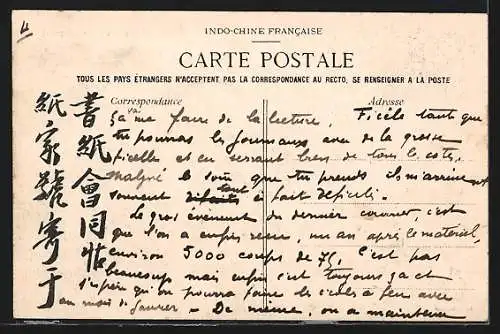 INDO-CHINE FRANÇAISE
CARTE POSTALE
TOUS LES PAYS ÉTRANGERS N'ACCEPTENT PAS LA CORRESPONDANCE AU RECTO, SE RENSEIGNER A LA POSTE
Correspondance
Adresse
ça me faire de la lecture. Ficèle tant que
tu pourras les journaux avec de la grosse
ficelle et en serrant bien de tous les côtés,
malgré le soin que tu prends ils m'arrivent
souvent tout à fait déficelés.
Le gros événement du dernier courrier, c'est
que l'on a enfin reçu, un an après le matériel,
environ 5000 coups de 75, C'est pas
beaucoup mais enfin c'est toujours ça et
j'espère qu'on pourra faire les écoles à feu avec
au mois de Janvier. De même, on a maintenu
書紙會同帖
紙家號寄于